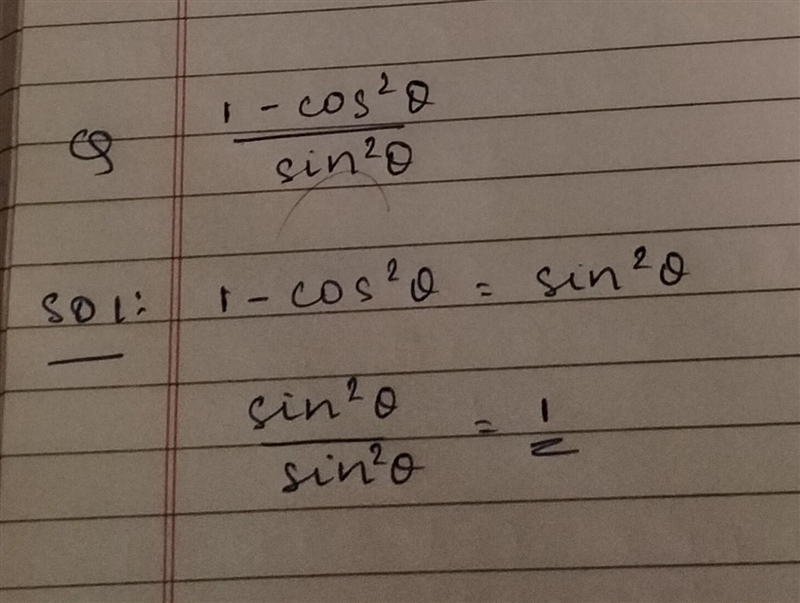 Q (1 - cos²θ) / (sin²θ)
Sol: 1 - cos²θ = sin²θ
(sin²θ) / (sin²θ) = 1